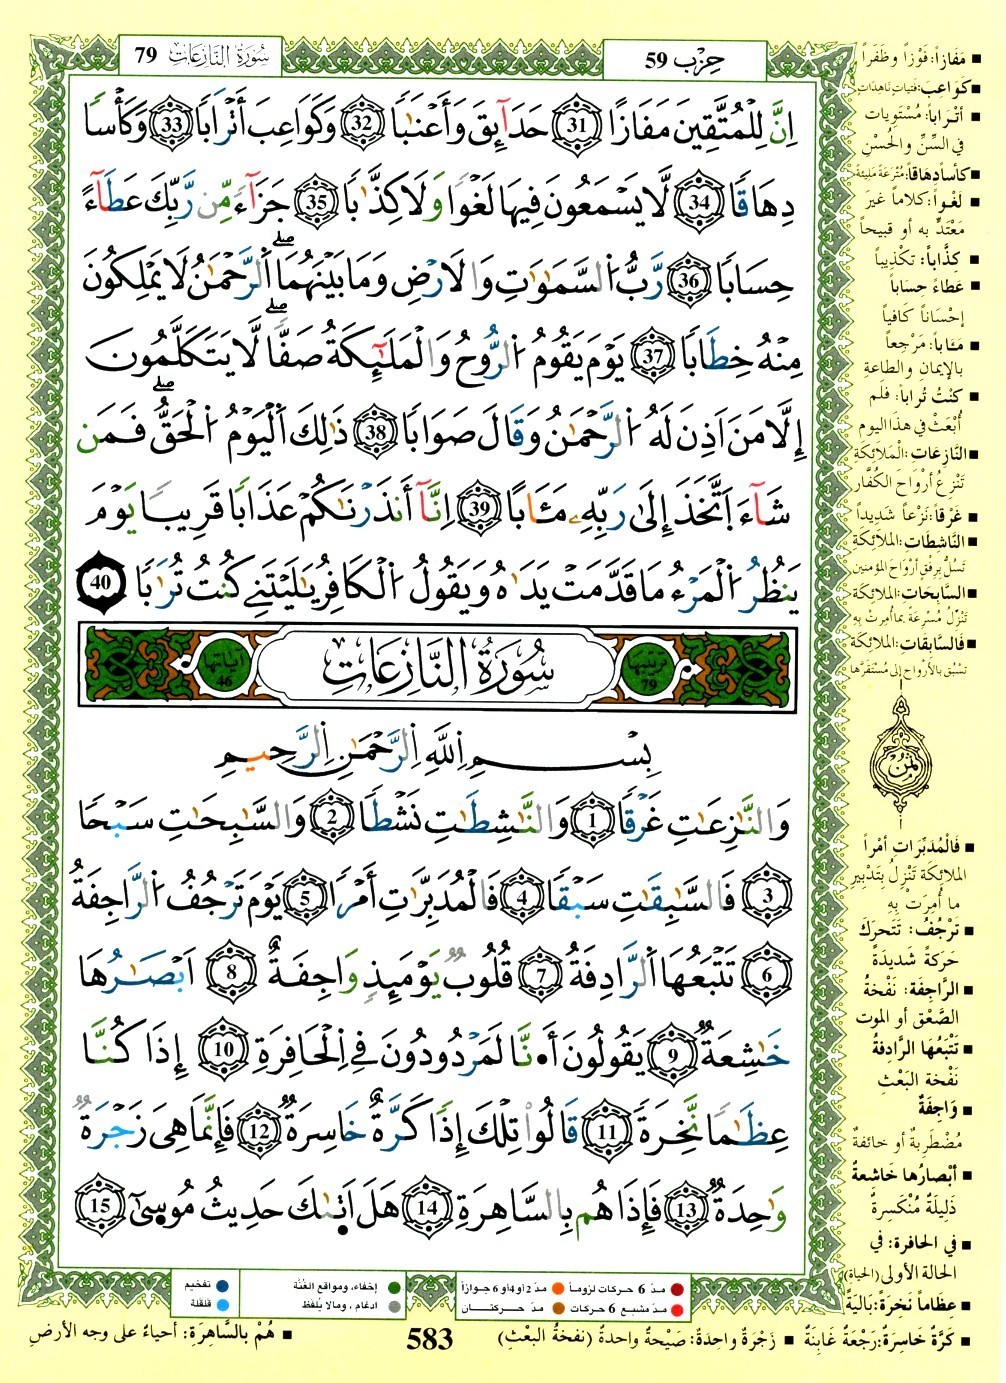 سُورَةُ النَّازِعَاتِ 79
حِزْب 59
إِنَّ لِلْمُتَّقِينَ مَفَازًا 31 حَدَآئِقَ وَأَعْنَٰبًا 32 وَكَوَاعِبَ أَتْرَابًا 33 وَكَأْسًا
دِهَاقًا 34 لَّا يَسْمَعُونَ فِيهَا لَغْوًا وَلَا كِذَّٰبًا 35 جَزَآءً مِّن رَّبِّكَ عَطَآءً
حِسَابًا 36 رَّبُّ السَّمَٰوَٰتِ وَالَارْضِ وَمَا بَيْنَهُمَا الرَّحْمَٰنُ لَا يَمْلِكُونَ
مِنْهُ خِطَابًا 37 يَوْمَ يَقُومُ الرُّوحُ وَالْمَلَٰٓئِكَةُ صَفًّا لَّا يَتَكَلَّمُونَ
إِلَّا مَنَ اَذِنَ لَهُ الرَّحْمَٰنُ وَقَالَ صَوَابًا 38 ذَٰلِكَ الْيَوْمُ الْحَقُّ فَمَن
شَآءَ اَتَّخَذَ إِلَىٰ رَبِّهِۦ مَـَٔابًا 39 اِنَّآ أَنذَرْنَٰكُمْ عَذَابًا قَرِيبًا يَوْمَ
يَنظُرُ الْمَرْءُ مَا قَدَّمَتْ يَدَاهُ وَيَقُولُ الْكَافِرُ يَٰلَيْتَنِي كُنتُ تُرَٰبًا 40
ترتيبها 79 سُورَةُ النَّازِعَاتِ آياتها 46
بِسْمِ اِللَّهِ اِلرَّحْمَٰنِ اِلرَّحِيمِ
وَالنَّٰزِعَٰتِ غَرْقًا 1 وَالنَّٰشِطَٰتِ نَشْطًا 2 وَالسَّٰبِحَٰتِ سَبْحًا
3 فَالسَّٰبِقَٰتِ سَبْقًا 4 فَالْمُدَبِّرَٰتِ أَمْرًا 5 يَوْمَ تَرْجُفُ الرَّاجِفَةُ
6 تَتْبَعُهَا الرَّادِفَةُ 7 قُلُوبٌ يَوْمَئِذٍ وَاجِفَةٌ 8 اَبْصَٰرُهَا
خَٰشِعَةٌ 9 يَقُولُونَ أَ•نَّا لَمَرْدُودُونَ فِي اِلْحَافِرَةِ 10 إِذَا كُنَّا
عِظَٰمًا نَّخِرَةً 11 قَالُوا تِلْكَ إِذًا كَرَّةٌ خَاسِرَةٌ 12 فَإِنَّمَا هِيَ زَجْرَةٌ
وَٰحِدَةٌ 13 فَإِذَا هُم بِالسَّاهِرَةِ 14 هَلَ اَتَىٰكَ حَدِيثُ مُوسَىٰ 15
■ مَفَازًا: فَوْزاً وظَفَراً
■ كَوَاعِبَ: فَتَيات نَاهِدَات
■ أَتْرَاباً: مُسْتَوِيات
في السِّنِّ والحُسْنِ
■ كأساً دِهَاقاً: مُتْرَعَة مَلِيئة
■ لَغْواً: كَلاماً غير
مُعْتَدٍّ به أو قبيحاً
■ كِذَّاباً: تكْذِيباً
■ عَطاءً حِسَاباً
إِحْسَاناً كافياً
■ مَـَٔاباً: مَرْجِعاً
بالإيمانِ والطاعةِ
■ كُنتُ تُرابا: فلم
أُبْعَثْ في هذا اليوم
■ النَّازِعَات: المَلَائِكَةِ
تَنْزِعُ أرْوَاحَ الكُفَّار
■ غَرْقاً: نَزْعاً شَدِيداً
■ النَّاشطَات: الملائِكَةِ
تَسُلُّ بِرِفْقٍ أَرْوَاحَ المؤمنين
■ السَّابِحَات: الملائِكَة
تَنْزِلُ مُسْرِعَة بما أُمِرَتْ بِهِ
■ فَالسَّابِقَات: الملَائِكَة
تَسْبِق بالأَرْوَاحِ إلى مُسْتَقَرِّهَا
ثمن
■ فَالْمُدَبِّرَات أَمْراً
الملائِكَة تَنْزِلُ بِتَدْبِيرِ
ما أُمِرَتْ بِهِ
■ تَرْجُفُ: تَتَحرَك
حَرَكَةً شَدِيدَةً
■ الرَّاجِفَة: نَفْخَةُ
الصَّعْق أو الموت
■ تَتْبَعُهَا الرَّادفةُ
نَفْخَة البَعْثِ
■ وَاجِفَةٌ
مُضْطَرِبَةٌ أو خائفةٌ
■ أَبْصارُها خَاشعةٌ
ذَلِيلَةٌ مُنْكَسِرةٌ
■ في الحافرة: في
الحالة الأولى (الحياة)
■ عِظَاماً نَخِرَةً: بَالِيَةً
مدّ 6 حركات لزوماً مدّ 2 أو 4 أو 6 جوازاً
مدّ مشبع 6 حركات مدّ حركتان
إخفاء، ومواقع الغُنَّة
ادغام، ومالا يُلفظ
تفخيم
قلقلة
■ كَرَّة خَاسِرَةٌ: رَجْعَة غَابِنَةٌ ■ زَجْرَةٌ واحِدَةٌ: صَيْحَةٌ واحدةٌ (نفخةُ البَعْثِ)
583
■ هُمْ بالسَّاهِرَةِ: أحياءٌ على وجه الأرض